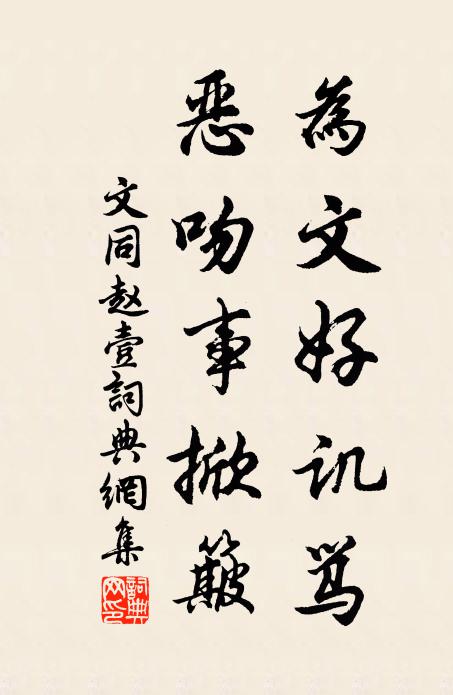 為文好讥骂
恶吻事掀簸
文同赵壹詞典網集
詞典网印